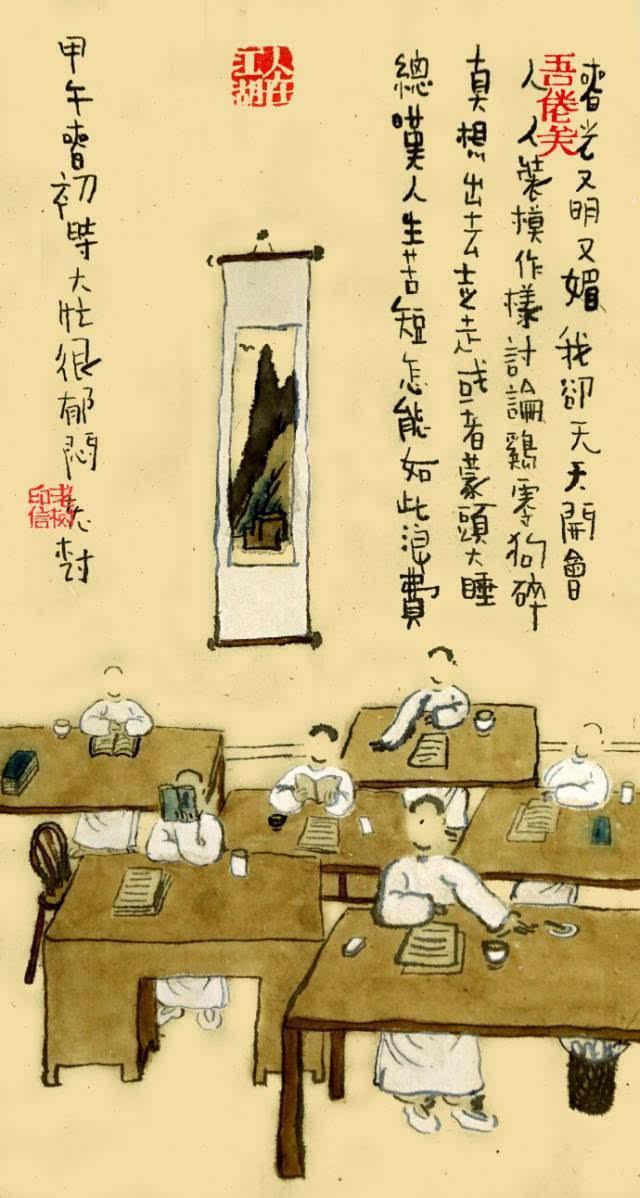 吾倦矣
春光又明又媚我卻天天開會
人人裝模作樣討論鷄零狗碎
真想出去走走或者蒙頭大睡
總嘆人生苦短怎能如此浪費
人在江湖
甲午春初時大壯很郁悶老树
老樹印信